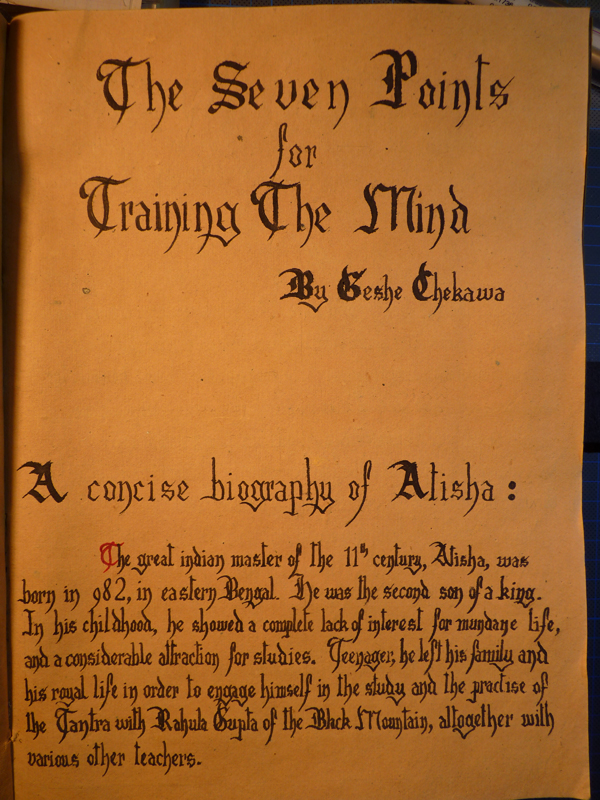 The Seven Points
for
Training The Mind
By Geshe Chekawa
A concise biography of Atisha :
The great indian master of the 11th century, Atisha, was
born in 982, in eastern Bengal. He was the second son of a king.
In his childhood, he showed a complete lack of interest for mundane life,
and a considerable attraction for studies. Teenager, he left his family and
his royal life in order to engage himself in the study and the practise of
the Tantra with Rahula Gupta of the Black Mountain, altogether with
various other teachers.